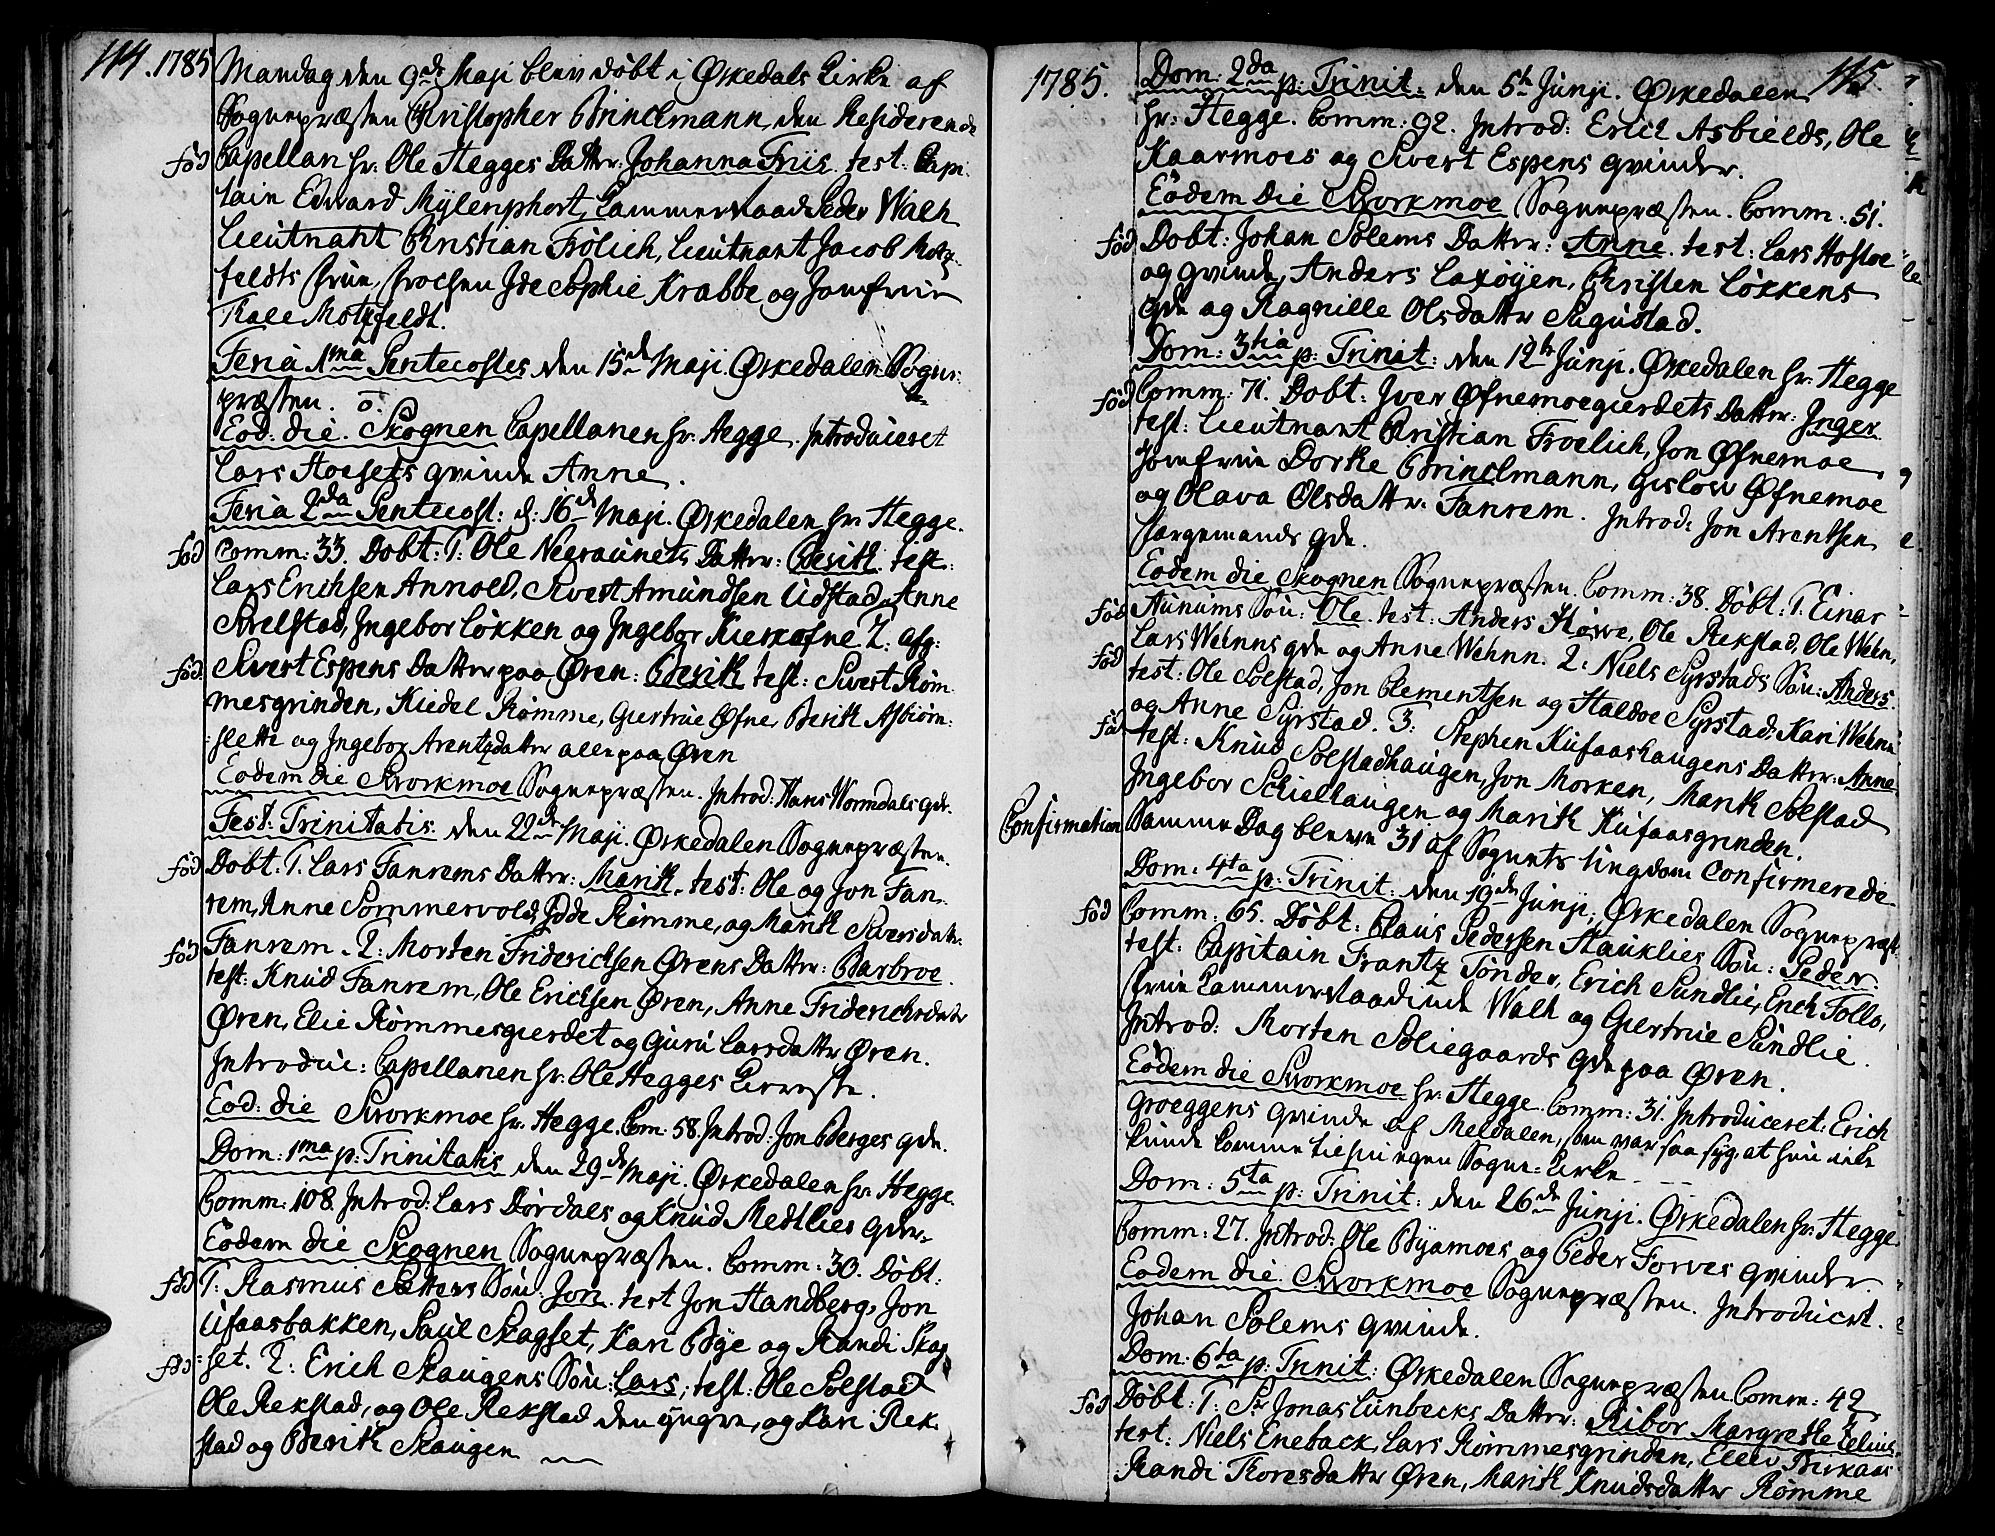 114. 1785
Mandag den 9de Maji blev döbt i Örkedals Kirke af
Sognepræsten Christopher Brinchmann, den Residerende
fød Capellan hr: Ole Hegges Datter: Johanna Friis. test: Capi-
tain Edvard Mylenphort, Cammerraad Peder Walh
Lieutnant Christian Frölich, Lieutnant Jacob Motz-
feldts frue, frøchen Ide Sophie Krabbe og Jomfrue
Kale Motzfeldt.
Feria 1ma Pentecostes den 15de Maji. Örkedalen Sogne-
præsten. o.
Eod: die. Skognen Capellanen hr: Hegge. Introduceret
Lars Hoesets qvinde Anne.
Feria 2da Pentecost: d: 16de Maji. Örkedalen hr: Hegge.
fød Comm: 33. Døbt: 1. Ole Negraunets Datter: Berith. test:
Lars Erichsen Annold, Sivert Amundsen Udstad, Anne
Qvelstad, Ingebor Løkken og Ingebor Kierkofne 2. afg:
fød. Sivert Espens Datter paa Øren: Berith test: Sivert Røm-
mesgrinden, Kiedel Rømme, Giertrue Øfne, Berith Asbiørn-
slette og Ingebor Arentzdatter alle paa Øren
Eodem die Svorkmoe Sognepræsten. Introd: Hans Wormdals qde.
Fest: Trinitatis den 22de Maji. Ørkedalen Sognepræsten.
fød Døbt: 1. Lars Fanrems Datter: Marith. test: Ole og Jon Fan-
rem, Anne Sommervold, Idde Rømme, og Marith Siversdatter
fød Fanrem. 2: Morten Friderichsen Ørens Datter: Barbroe.
test: Knud Fanrem, Ole Erichsen Øren, Anne Friderichsdatter
Øren, Elie Rømmesgierdet og Guru Larsdatter Øren.
Introduc: Capellanen hr: Ole Hegges Kiereste.
Eod: die Svorkmoe hr: Hegge. Com: 58. Introd: Jon Berges qde.
Dom: 1ma p: Trinitatis den 29de Maji. Ørkedalen hr: Hegge.
Comm: 108. Introd: Lars Dørdals og Knud Medtlies qder.
Eodem die Skognen Sognepræsten. Comm: 30. Døbt:
fød 1. Rasmus Sætters Søn: Jon. test Jon Handberg, Jon
Ufaasbakken, Paul Skagset, Kari Bye og Randi Skag-
fød set. 2: Erich Skaugens Søn: Lars, test: Ole Solstad
Ole Rekstad, og Ole Rekstad den yngre, og Kari Rek-
stad og Berith Skaugen
1785. 115.
Dom: 2da p: Trinit: den 5te Junji. Ørkedalen
hr: Hegge. Comm: 92. Introd: Erich Asbields, Ole
Kaarmoes og Sivert Espens qvinder.
Eodem die Svorkmoe Sognepræsten. Comm: 51.
fød Døbt: Johan Solems Datter: Anne. test: Lars Hofloe
og qvinde, Anders Laxøyen, Christen Løkkens
qde og Ragnille Olsdatter Sugustad.
Dom: 3tia p: Trinit: den 12te Junji. Ørkedalen hr: Hegge
fød Comm: 71. Døbt: Iver Øfnemoegierdets Datter: Inger
test: Lieutnant Christian Froelich, Jon Øfnemoe
Jomfrue Dorthe Brinchmann, Gislou Øfnemoe
og Olava Olsdatter Fanrem. Introd: Jon Arentsen
færgemands qde.
Eodem die Skognen Sognepræsten. Comm: 38. Døbt: 1. Einar
fød Aunums Søn: Ole. test: Anders Hovve, Ole Rekstad, Ole Wehn,
fød Lars Wehnns qde og Anne Wehnn. 2: Niels Syrstads Søn: Anders.
test: Ole Solstad, Jon Clementsen og Haldoe Syrstad, Kari Wehnn
og Anne Syrstad. 3: Stephen Kufaashaugens Datter: Anne
fød test: Knud Solstadhaugen, Jon Morken, Marith Solstad
Ingebor Schielhaugen og Marith Kufaasgrinden.
Confirmation Samme Dag bleve 31 af Sognets Ungdom Confirmerede
Dom: 4ta p: Trinit: den 19de Junji, Ørkedalen Sognepræst.
fød Comm: 65. Døbt: Claus Pedersen Hauklies Søn: Peder.
test: Capitain Frantz Tønder, Erich Sundlie, Erich Follo,
frue Cammerraadinde Walh og Giertrue Sundlie.
Introd: Morten Soliegaards qde paa Øren.
Eodem die Svorkmoe hr: Hegge. Comm: 31. Introduceret: Erich
Groeggens qvinde af Meldalen, som var saa syg, at hun icke
kunde komme til sin egen Sogne-Kirke - - -
Dom: 5ta p: Trinit: den 26de Junji. Ørkedalen hr: Hegge
Comm: 27. Introd: Ole Byamoes og Peder Forves qvinder.
Eodem die. Svorkmoe Sognepræsten. Introduceret.
Johan Solems qvinde.
Dom: 6ta p: Trinit: Ørkedalen Sognepræsten. Comm: 42
fød Døbt: 1. Sr Jonas Lunbecks Datter: Ribor Margrethe Elius
test: Niels Eneback, Lars Rømmesgrinden, Ellev Birkaas
Randi Thoresdatter Øren, Marith Knudsdatter Rømme